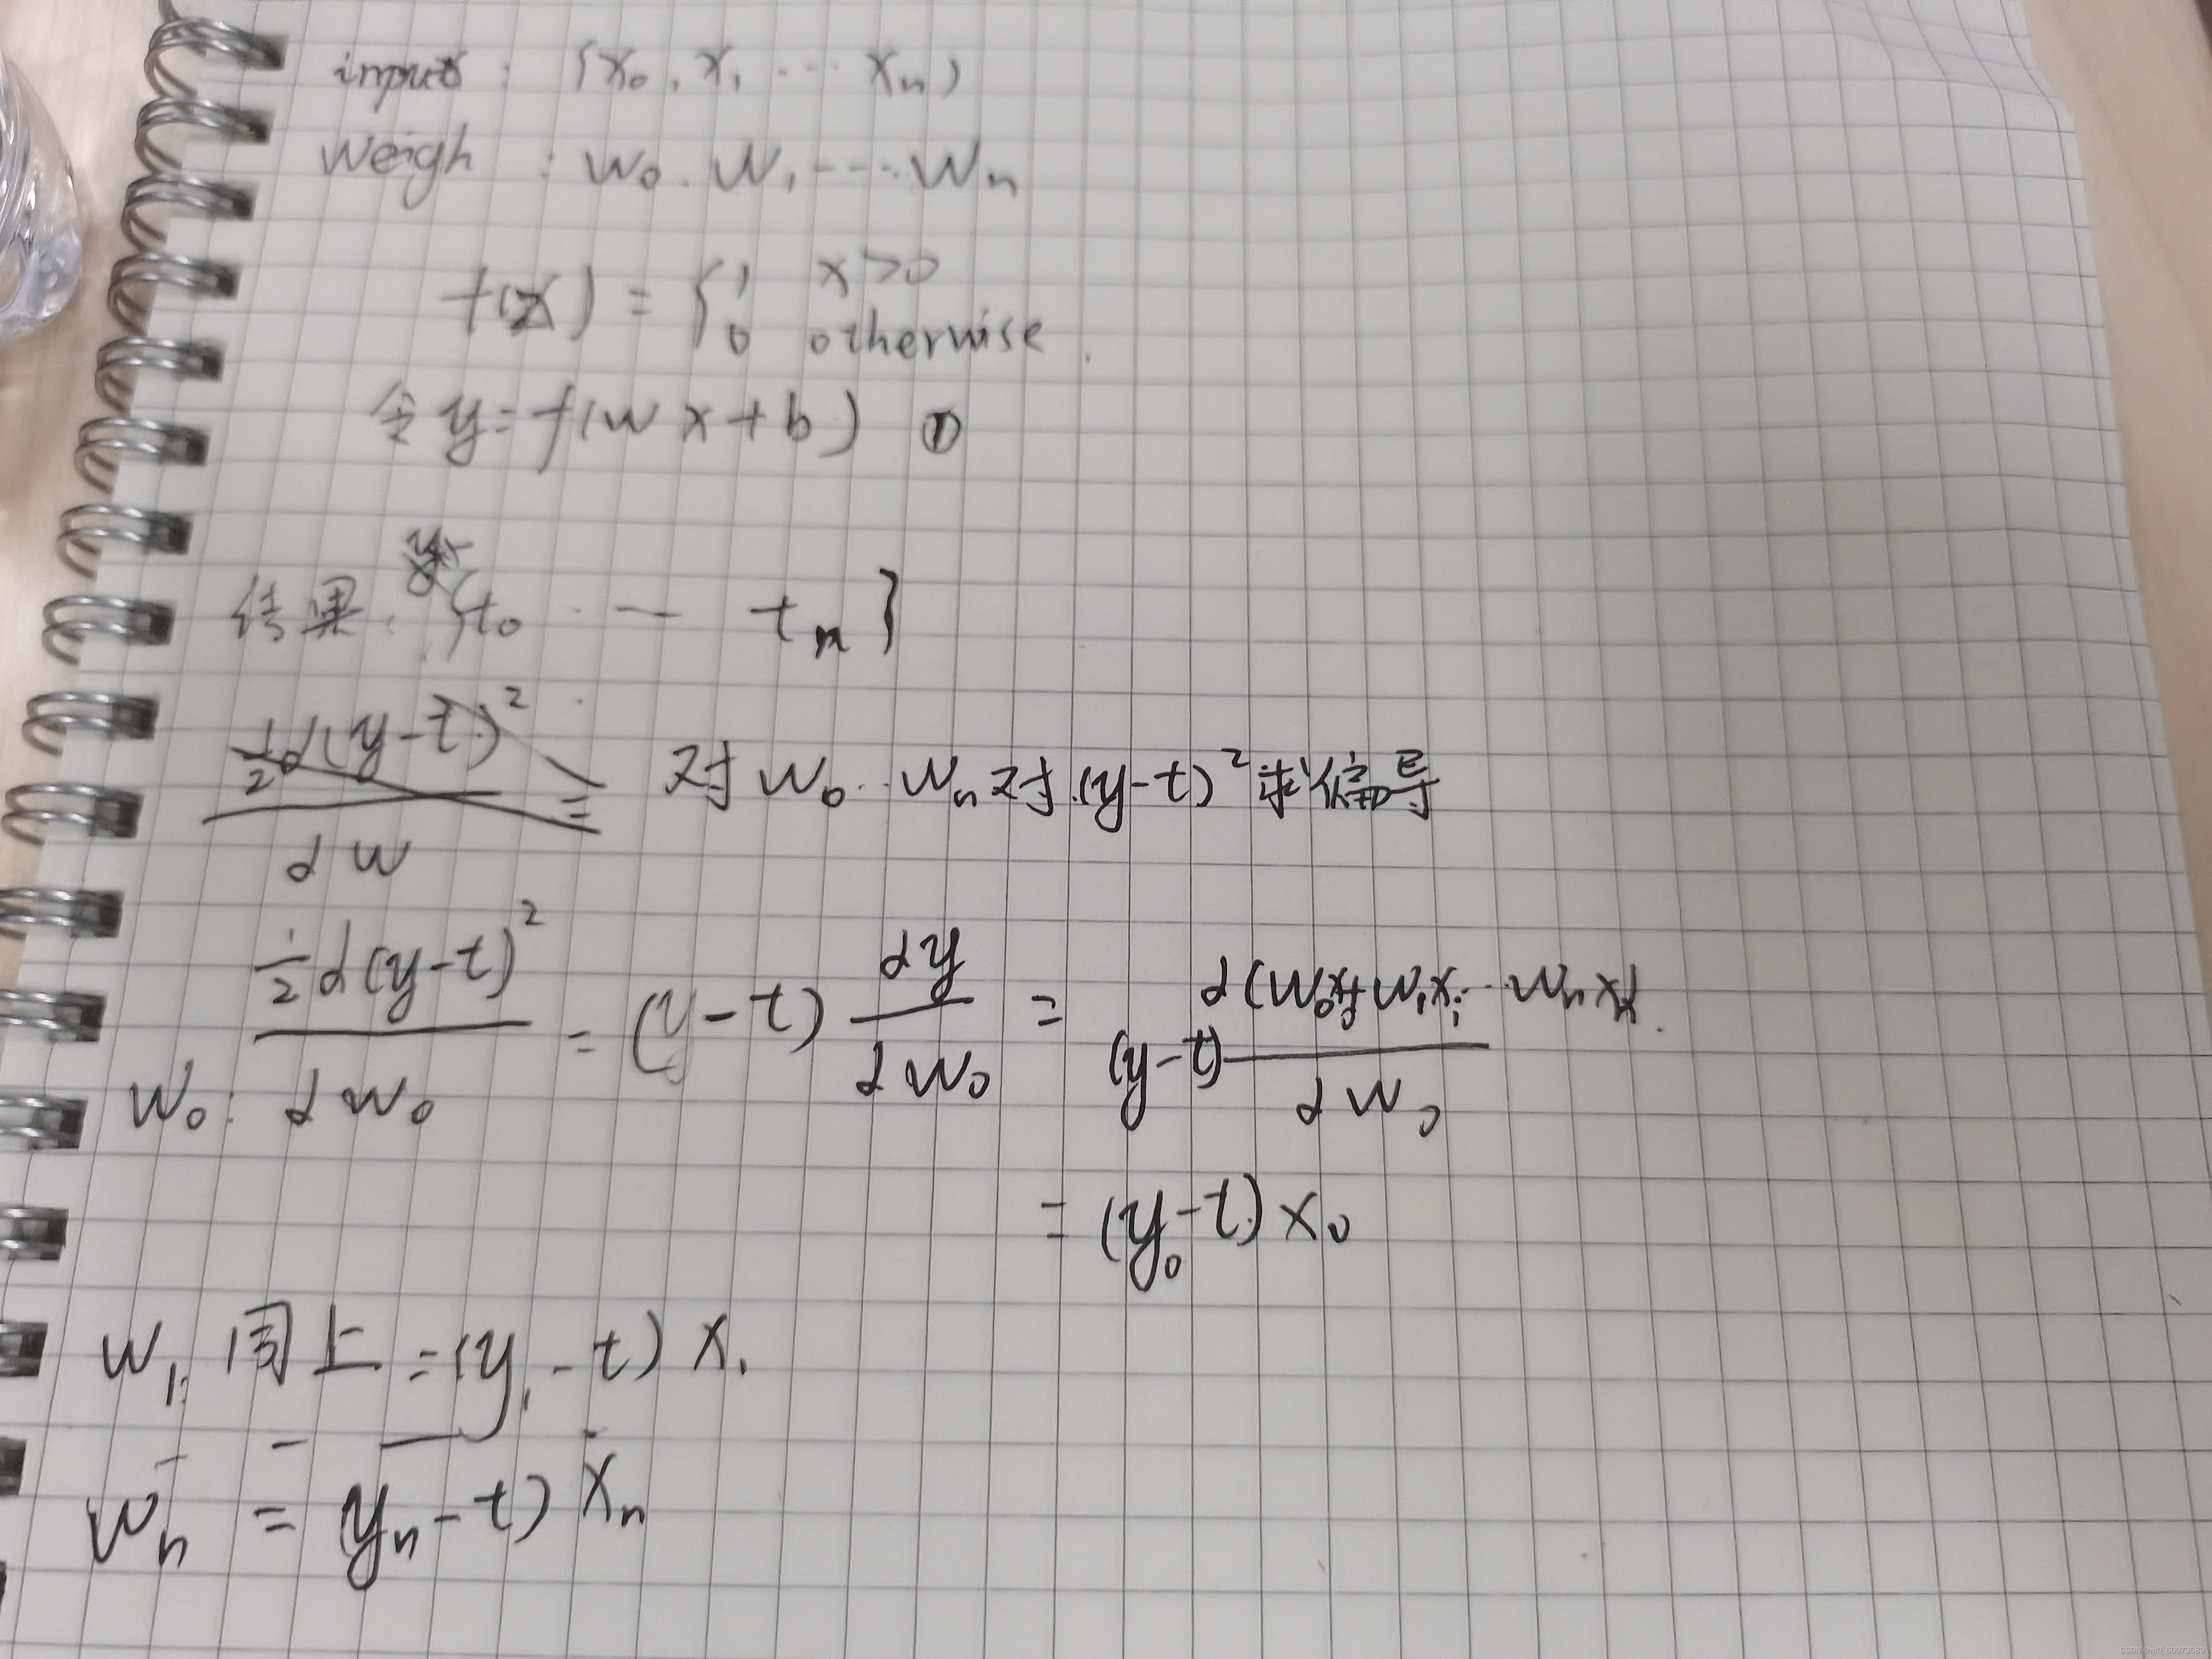 input : {x₀, x₁ ··· xₙ)
weigh : w₀. w₁ ···· wₙ
f(x) = { 1 x>0
0 otherwise.
令 y = f(w x + b) ①
结果: {t₀ ·—— tₘ}
½d(y-t)² / dw = 对 w₀··wₙ 对 (y-t)² 求偏导
w₀: ½d(y-t)² / dw₀ = (y-t) dy / dw₀ = (y-t) d(w₀x₀+w₁x₁··wₙxₙ) / dw₀
= (y₀-t) x₀
w₁: 同上 = (y₁-t) x₁
- - — -
wₙ = (yₙ-t) xₙ